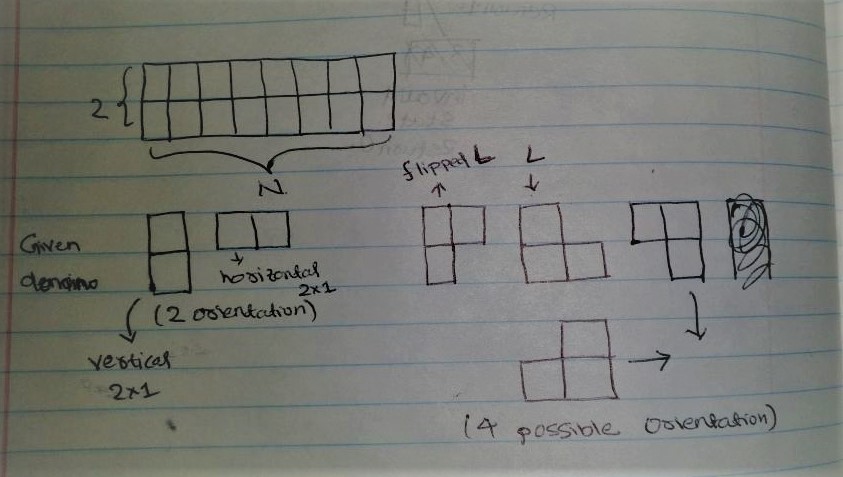 2
N
flipped L
L
Given
domino
horizontal
2x1
(2 orientation)
vertical
2x1
(4 possible orientation)